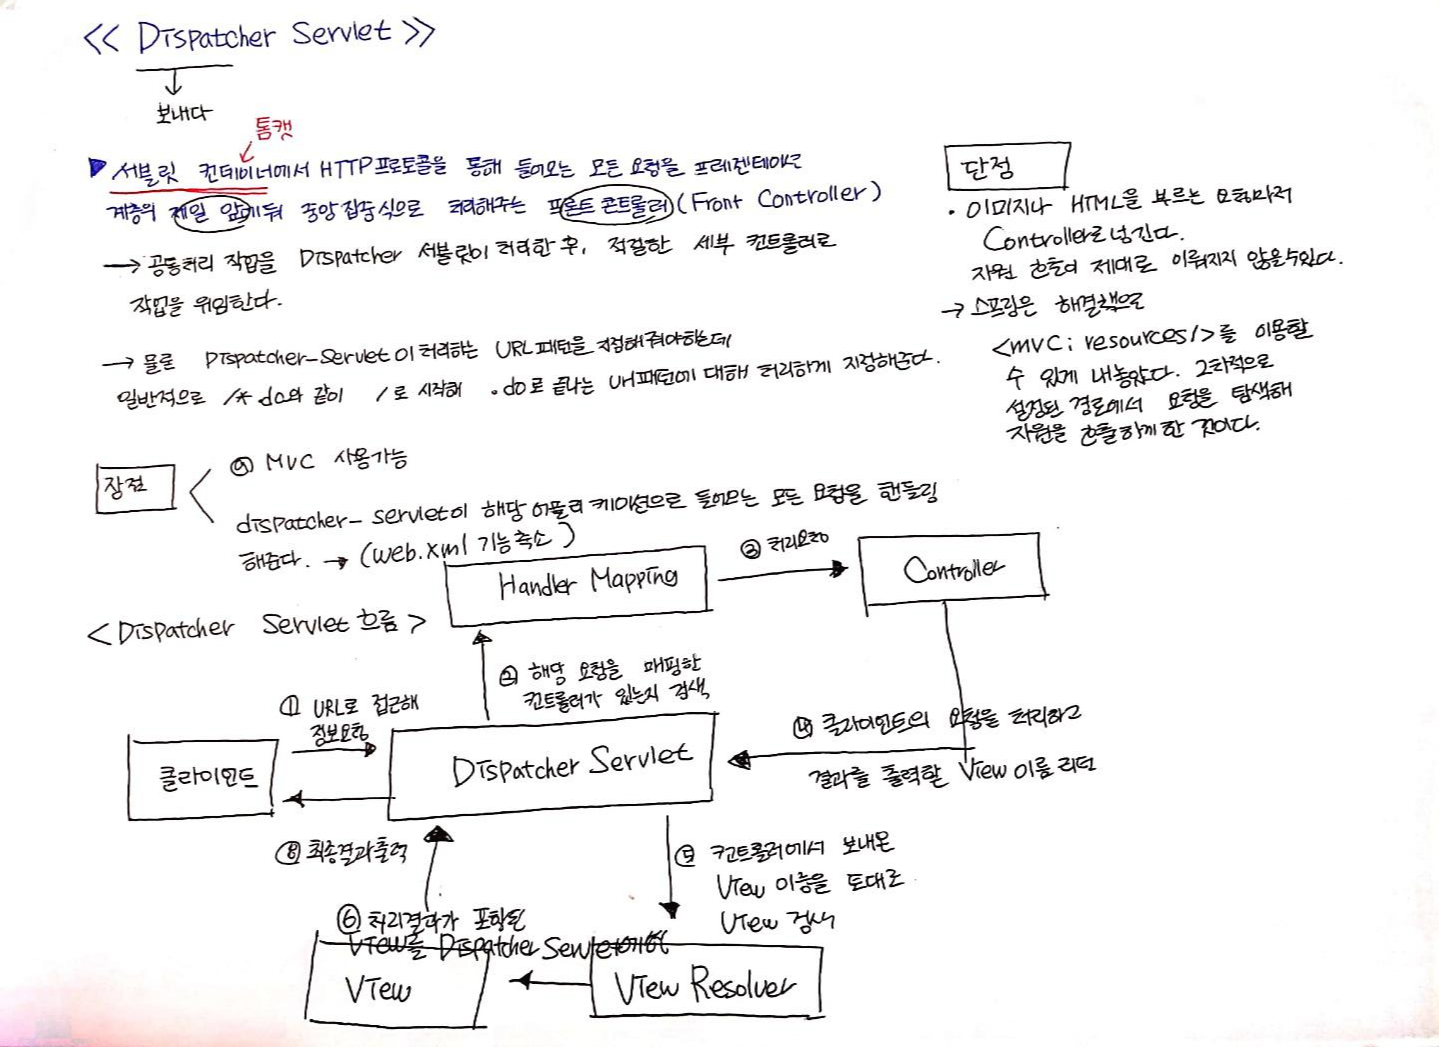 << Dispatcher Servlet >>
보내다
톰캣
▶ 서블릿 컨테이너에서 HTTP프로토콜을 통해 들어오는 모든 요청을 프레젠테이션
계층의 제일 앞에둬 중앙집중식으로 처리해주는 프론트 콘트롤러(Front Controller)
→ 공통처리 작업을 Dispatcher 서블릿이 처리한 후, 적절한 세부 컨트롤러로
작업을 위임한다.
→ 물론 Dispatcher-Servlet이 처리하는 URL패턴을 지정해줘야하는데
일반적으로 /*.do와 같이 /로 시작해 .do로 끝나는 url패턴에 대해 처리하게 지정해준다.
단점
· 이미지나 HTML을 부르는 요청마저
Controller로 넘긴다.
자원 호출이 제대로 이뤄지지 않을수있다.
→ 스프링은 해결책으로
<mvc:resources/>를 이용할
수 있게 내놓았다. 2차적으로
설정된 경로에서 요청을 탐색해
자원을 호출하게 한 것이다.
장점
⓪ MVC 사용가능
dispatcher-servlet이 해당 어플리케이션으로 들어오는 모든 요청을 핸들링
해준다. → (web.xml 기능축소)
<Dispatcher Servlet 흐름>
Handler Mapping
③ 처리요청
Controller
② 해당 요청을 매핑한
컨트롤러가 있는지 검색
① URL로 접근해
정보요청
클라이언트
Dispatcher Servlet
④ 클라이언트의 요청을 처리하고
결과를 출력할 View 이름 리턴
⑧ 최종결과출력
⑤ 컨트롤러에서 보내온
View 이름을 토대로
View 검색
⑥ 처리결과가 포함된
View를 Dispatcher Servlet에
View
View Resolver